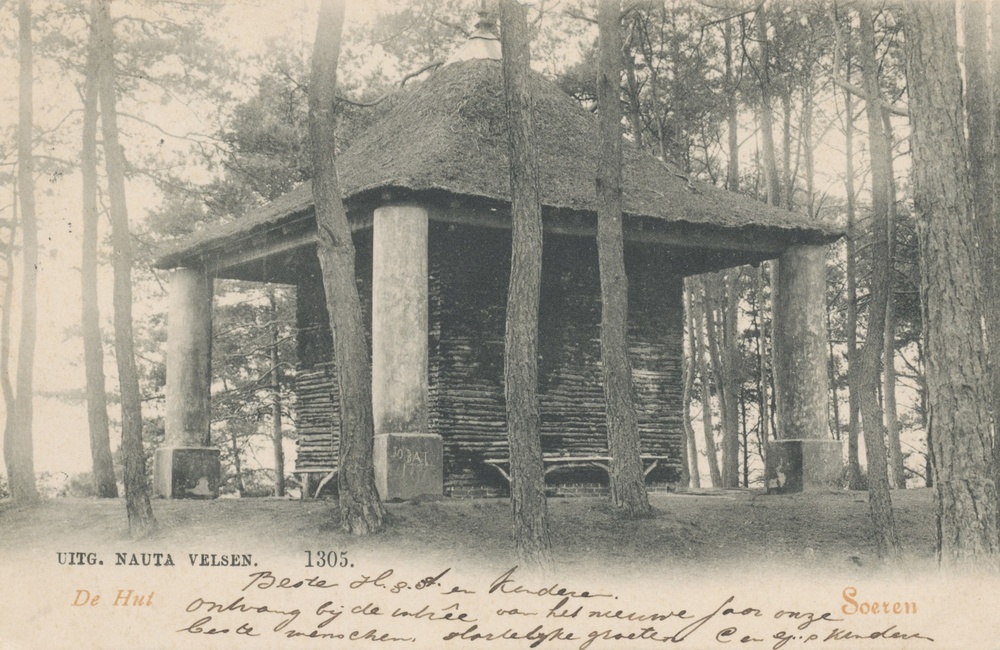 JOBAI
UITG. NAUTA VELSEN. 1305.
De Hut
Soeren
Beste H. g. A en kinderen.
ontvang bij de entrée van het nieuwe Jaar onze
beste wenschen. Hartelijke groeten C en G. kinderen